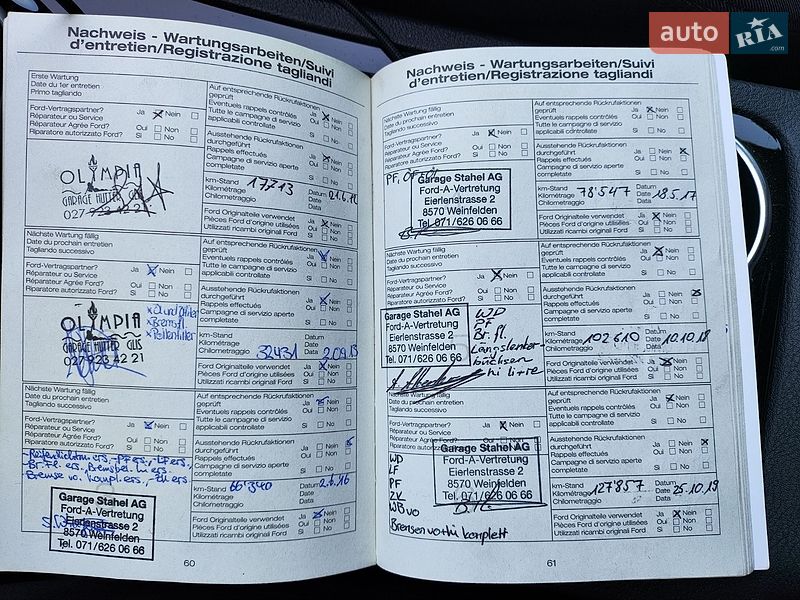 auto RIA .com
Nachweis - Wartungsarbeiten/Suivi
d'entretien/Registrazione tagliandi
Erste Wartung
Date du 1er entretien
Primo tagliando
Ford-Vertragspartner? Ja Nein
Réparateur ou Service Oui Non
Réparateur Agrée Ford?
Riparatore autorizzato Ford? Si No
Auf entsprechende Rückrufaktionen
geprüft Ja Nein
Eventuels rappels contrôlés Oui Non
Tutte le campagne di servizio
applicabili controllate Si No
Ausstehende Rückrufaktionen
durchgeführt Ja Nein
Rappels effectués Oui Non
Campagne di servizio aperte
completate Si No
OLYMPIA
GARAGE HUTTER GLIS
027 923 42 21
km-Stand 17213 Datum
Kilométrage Date
Chilometraggio Data
Ford Originalteile verwendet Ja Nein
Pièces Ford d'origine utilisées Oui Non
Utilizzati ricambi originali Ford Si No
Nächste Wartung fällig
Date du prochain entretien
Tagliando successivo
Ford-Vertragspartner? Ja Nein
Réparateur ou Service Oui Non
Réparateur Agrée Ford?
Riparatore autorizzato Ford? Si No
Auf entsprechende Rückrufaktionen
geprüft Ja Nein
Eventuels rappels contrôlés Oui Non
Tutte le campagne di servizio
applicabili controllate Si No
Ausstehende Rückrufaktionen
durchgeführt Ja Nein
Rappels effectués Oui Non
Campagne di servizio aperte
completate Si No
OLYMPIA
GARAGE HUTTER GLIS
027 923 42 21
x Bremsfl.
x Pollenfilter
km-Stand Datum
Kilométrage Date
Chilometraggio 32431 Data
Ford Originalteile verwendet Ja Nein
Pièces Ford d'origine utilisées Oui Non
Utilizzati ricambi originali Ford Si No
Nächste Wartung fällig
Date du prochain entretien
Tagliando successivo
Ford-Vertragspartner? Ja Nein
Réparateur ou Service Oui Non
Réparateur Agrée Ford?
Riparatore autorizzato Ford? Si No
Auf entsprechende Rückrufaktionen
geprüft Ja Nein
Eventuels rappels contrôlés Oui Non
Tutte le campagne di servizio
applicabili controllate Si No
Ausstehende Rückrufaktionen
durchgeführt Ja Nein
Rappels effectués Oui Non
Campagne di servizio aperte
completate Si No
Garage Stahel AG
Ford-A-Vertretung
Eierlenstrasse 2
8570 Weinfelden
Tel. 071/626 06 66
km-Stand 66'340 Datum 2.6.16
Kilométrage Date
Chilometraggio Data
Ford Originalteile verwendet Ja Nein
Pièces Ford d'origine utilisées Oui Non
Utilizzati ricambi originali Ford Si No
60
Nachweis - Wartungsarbeiten/Suivi
d'entretien/Registrazione tagliandi
Nächste Wartung fällig
Date du prochain entretien
Tagliando successivo
Ford-Vertragspartner? Ja Nein
Réparateur ou Service Oui Non
Réparateur Agrée Ford?
Riparatore autorizzato Ford? Si No
Auf entsprechende Rückrufaktionen
geprüft Ja Nein
Eventuels rappels contrôlés Oui Non
Tutte le campagne di servizio
applicabili controllate Si No
Ausstehende Rückrufaktionen
durchgeführt Ja Nein
Rappels effectués Oui Non
Campagne di servizio aperte
completate Si No
PF,
Garage Stahel AG
Ford-A-Vertretung
Eierlenstrasse 2
8570 Weinfelden
Tel. 071/626 06 66
km-Stand 78'547 Datum 18.5.17
Kilométrage Date
Chilometraggio Data
Ford Originalteile verwendet Ja Nein
Pièces Ford d'origine utilisées Oui Non
Utilizzati ricambi originali Ford Si No
Nächste Wartung fällig
Date du prochain entretien
Tagliando successivo
Ford-Vertragspartner? Ja Nein
Réparateur ou Service Oui Non
Réparateur Agrée Ford?
Riparatore autorizzato Ford? Si No
Auf entsprechende Rückrufaktionen
geprüft Ja Nein
Eventuels rappels contrôlés Oui Non
Tutte le campagne di servizio
applicabili controllate Si No
Ausstehende Rückrufaktionen
durchgeführt Ja Nein
Rappels effectués Oui Non
Campagne di servizio aperte
completate Si No
Garage Stahel AG
Ford-A-Vertretung
Eierlenstrasse 2
8570 Weinfelden
Tel. 071/626 06 66
WD
PF
Br. fl.
Längslenker-
büchsen
hi li+re
km-Stand Datum
Kilométrage 102610 Date 10.10.18
Chilometraggio Data
Ford Originalteile verwendet Ja Nein
Pièces Ford d'origine utilisées Oui Non
Utilizzati ricambi originali Ford Si No
Nächste Wartung fällig
Date du prochain entretien
Tagliando successivo
Ford-Vertragspartner? Ja Nein
Réparateur ou Service Oui Non
Réparateur Agrée Ford?
Riparatore autorizzato Ford?
Auf entsprechende Rückrufaktionen
geprüft Ja Nein
Eventuels rappels contrôlés Oui Non
Tutte le campagne di servizio
applicabili controllate Si No
Ausstehende Rückrufaktionen
durchgeführt Ja Nein
Rappels effectués Oui Non
Campagne di servizio aperte
completate Si No
WD
LF
PF
ZV
WB vo
Bremsen vo+hi komplett
Garage Stahel AG
Ford-A-Vertretung
Eierlenstrasse 2
8570 Weinfelden
Tel. 071/626 06 66
km-Stand 127857 Datum 25.10.19
Kilométrage Date
Chilometraggio Data
Ford Originalteile verwendet Ja Nein
Pièces Ford d'origine utilisées Oui Non
Utilizzati ricambi originali Ford Si No
61